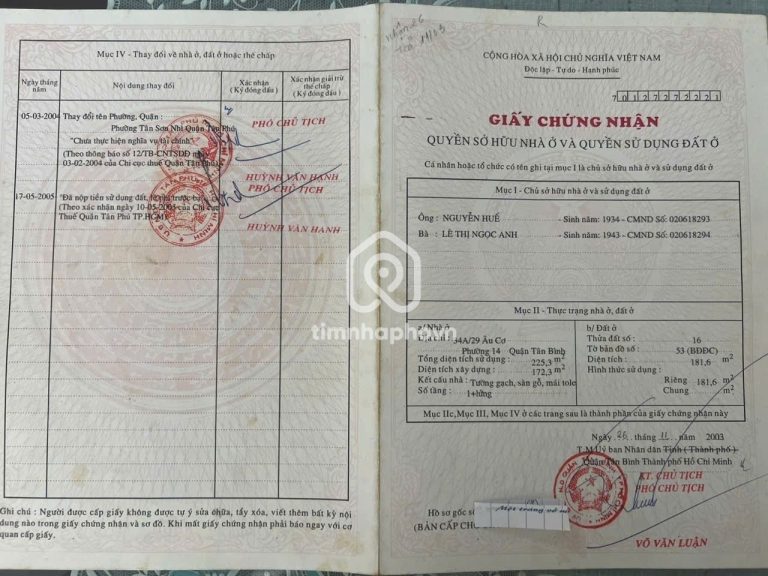 Mục IV - Thay đổi về nhà ở, đất ở hoặc thế chấp
Ngày tháng năm
Nội dung thay đổi
Xác nhận (Ký đóng dấu)
Xác nhận giải trừ thế chấp (Ký đóng dấu)
05-03-2004 Thay đổi tên Phường, Quận :
Phường Tân Sơn Nhì Quận Tân Phú
PHÓ CHỦ TỊCH
"Chưa thực hiện nghĩa vụ tài chính"
(Theo thông báo số 12/TB-CNTSDĐ ngày
03-02-2004 của Chi cục thuế Quận Tân Phú)
HUỲNH VĂN HẠNH
PHÓ CHỦ TỊCH
17-05-2005 "Đã nộp tiền sử dụng đất,
(Theo xác nhận ngày 10-05-2005 của Chi cục
Thuế Quận Tân Phú TP.HCM)
HUỲNH VĂN HẠNH
Ghi chú : Người được cấp giấy không được tự ý sửa chữa, tẩy xóa, viết thêm bất kỳ nội
dung nào trong giấy chứng nhận và sơ đồ. Khi mất giấy chứng nhận phải báo ngay với cơ
quan cấp giấy.
timnhapho.vn
R
CỘNG HÒA XÃ HỘI CHỦ NGHĨA VIỆT NAM
Độc lập - Tự do - Hạnh phúc
7 0 1 2 7 2 7 2 2 2 1
GIẤY CHỨNG NHẬN
QUYỀN SỞ HỮU NHÀ Ở VÀ QUYỀN SỬ DỤNG ĐẤT Ở
Cá nhân hoặc tổ chức có tên ghi tại mục I là chủ sở hữu nhà ở và sử dụng đất ở
Mục I - Chủ sở hữu nhà ở và sử dụng đất ở
Ông : NGUYỄN HUẾ - Sinh năm: 1934 - CMND Số: 020618293
Bà : LÊ THỊ NGỌC ANH - Sinh năm: 1943 - CMND Số: 020618294
Mục II - Thực trạng nhà ở, đất ở
a/ Nhà ở
Địa chỉ : 34A/29 Âu Cơ
Phường 14 Quận Tân Bình
Tổng diện tích sử dụng : 225,3 m2
Diện tích xây dựng : 172,3 m2
Kết cấu nhà : Tường gạch, sàn gỗ, mái tole
Số tầng : 1+lửng
b/ Đất ở
Thửa đất số : 16
Tờ bản đồ số : 53 (BĐĐC)
Diện tích : 181,6 m2
Hình thức sử dụng :
Riêng : 181,6 m2
Chung : m2
Mục IIc, Mục III, Mục IV ở các trang sau là thành phần của giấy chứng nhận này
Ngày 26 tháng 11 năm 2003
T.M Ủy ban Nhân dân Tỉnh (Thành phố)
Quận Tân Bình Thành phố Hồ Chí Minh
KT. CHỦ TỊCH
PHÓ CHỦ TỊCH
Hồ sơ gốc số
(BẢN CẤP CHO
VÕ VĂN LUẬN